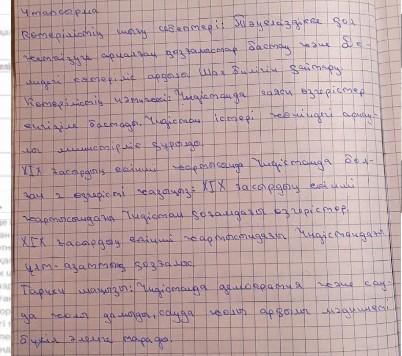 4 тапсырма
Көтерілістің шығу себептері: Тәуелсіздікке қол
жеткізуге арналған қозғалыстар бастау және
көтеріліс арқылы Шах билігін қайтару
Көтерілістің нәтижесі: Үндістанда заяси өзгерістер
енгізіле бастады. Үндістан істері жөніндегі арнау-
лы министірлік құрылды.
XIX ғасырдың екінші жартысында Үндістанда бол-
ған 2 өзгерісті жазыңыз: XIX ғасырдың екінші
жартысындағы Үндістан қоғамдағы өзгерістер.
XIX ғасардың екінші жартысындағы Үндістандағы
ұлт-азаттық қозғалос.
Тарихи маңызы: Үндістанда демократия және сау-
да жолы дамыды, сауда жолы арқылы мәдениеті
бүкіл әлемге тарады.